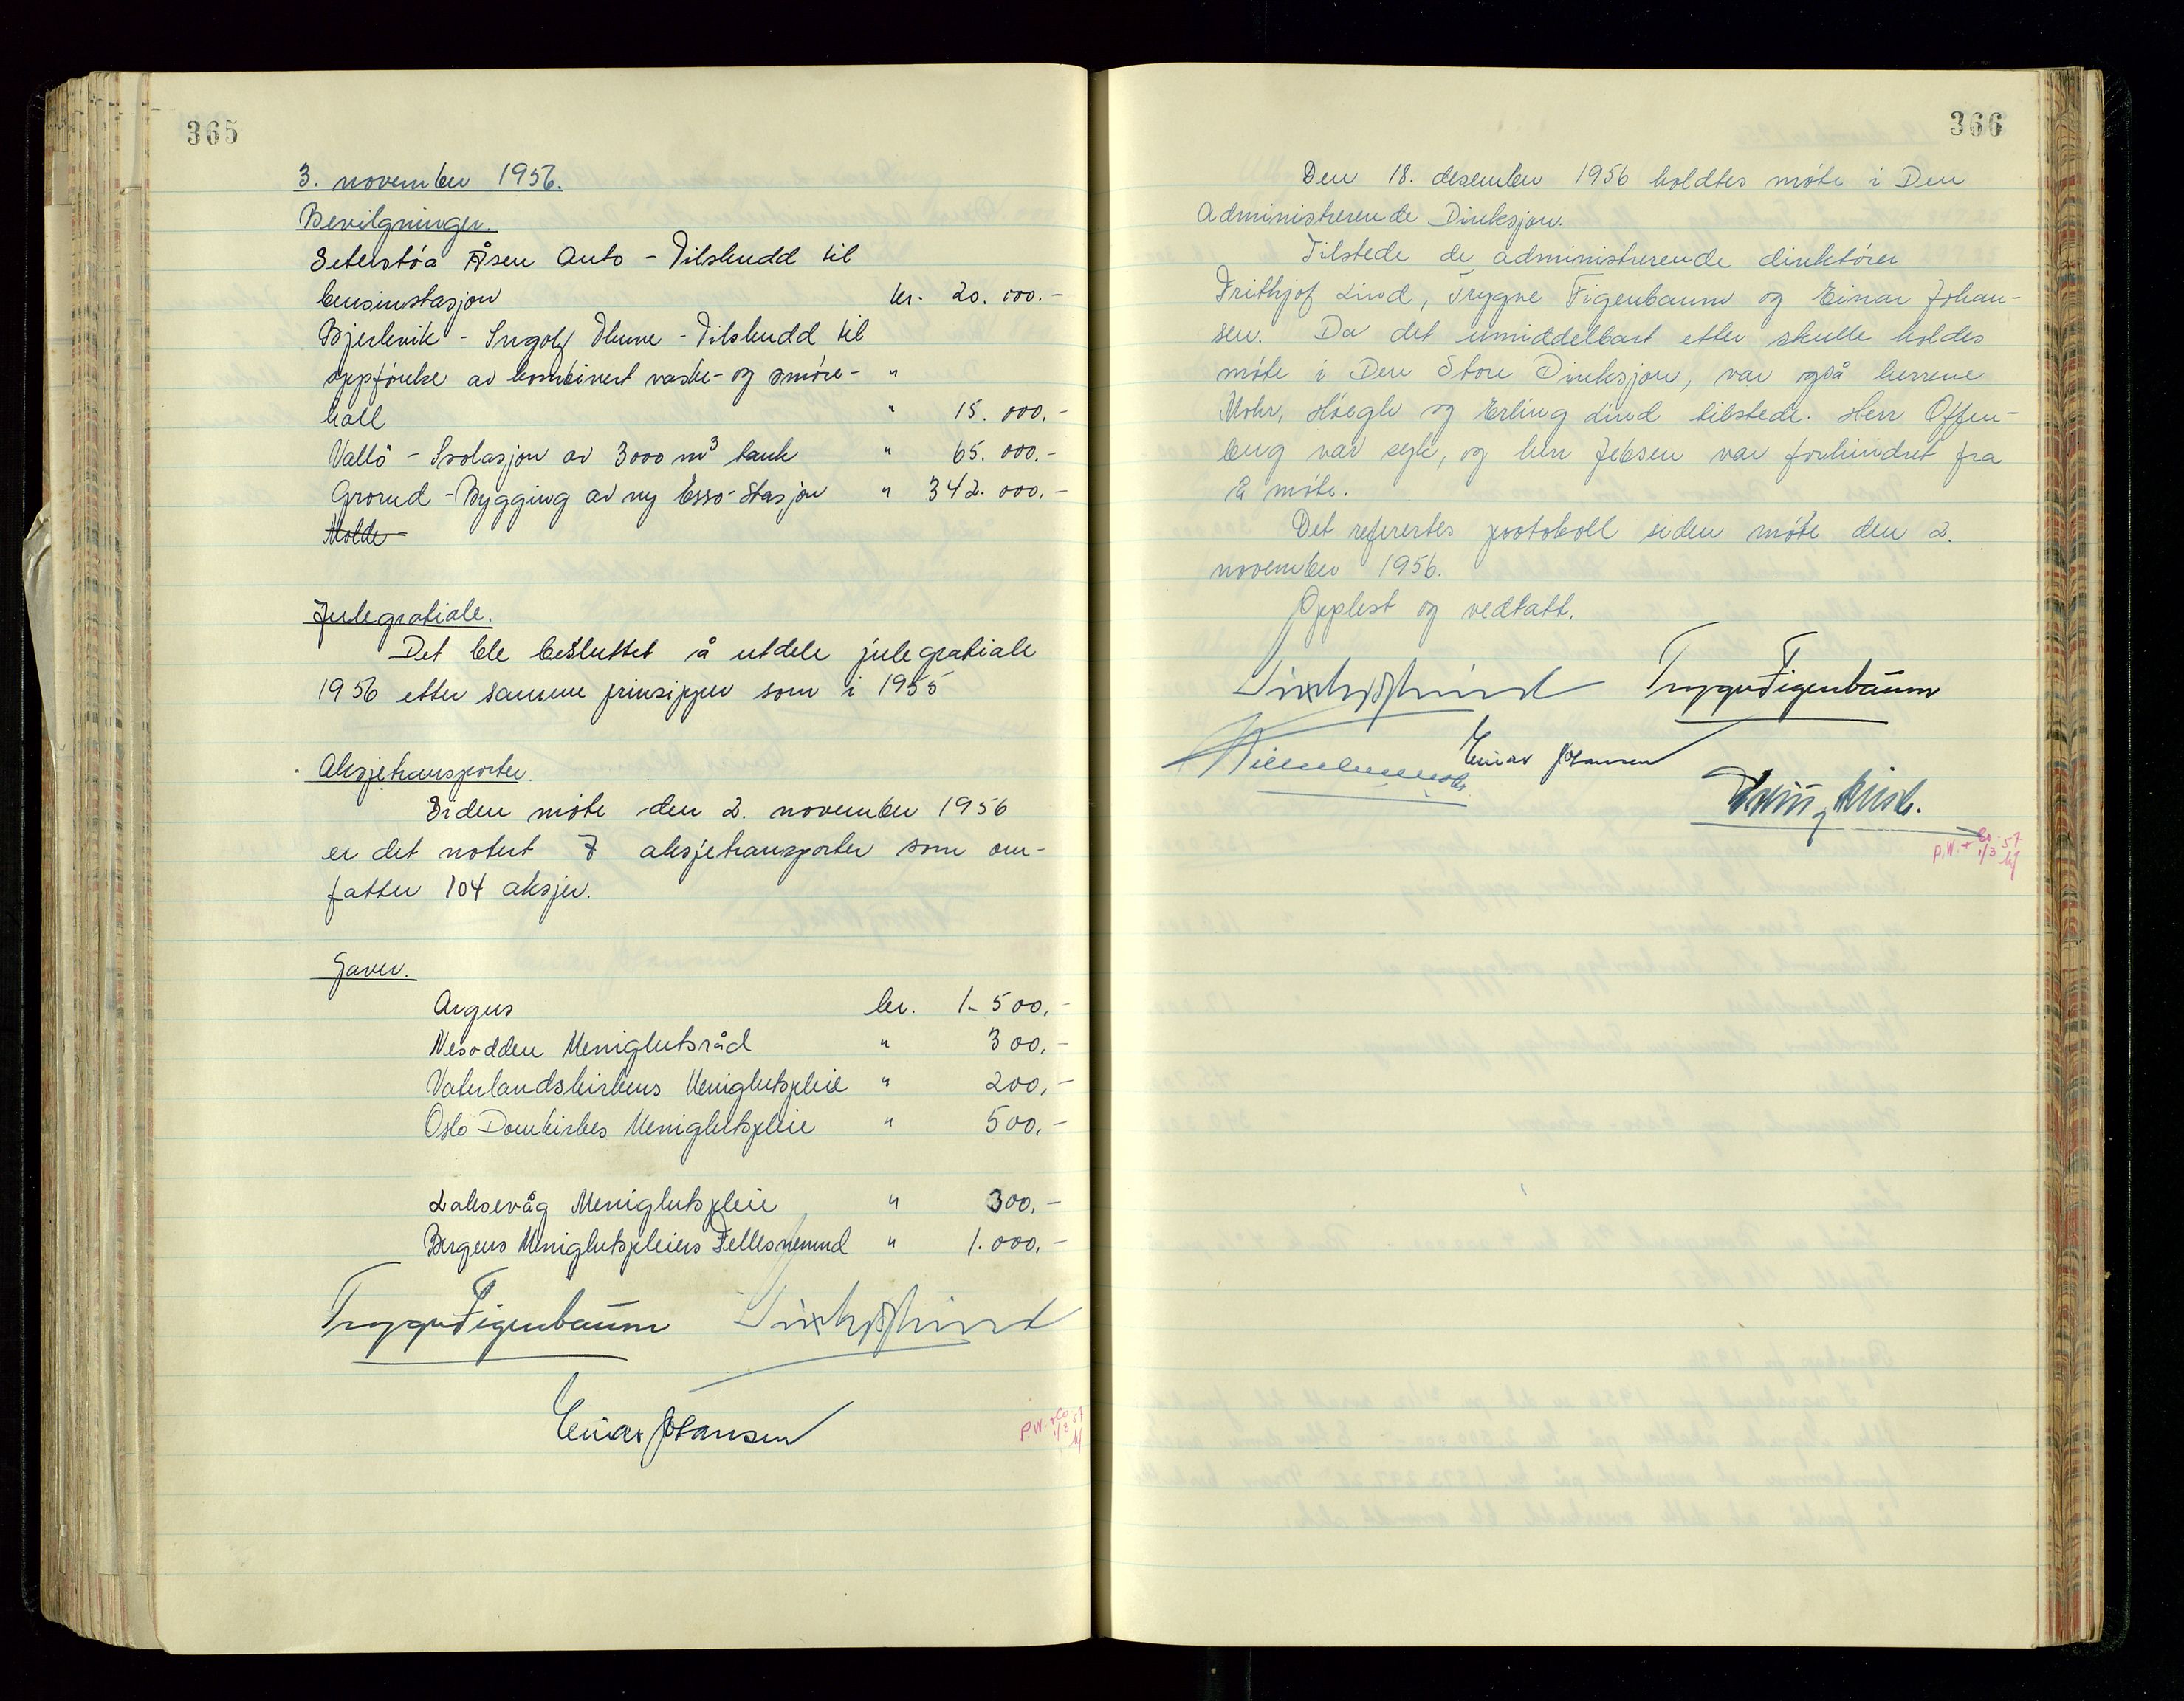 365
3. november 1956.
Bevilgninger.
Seterstöa Åsen Auto - Tilskudd til
bensinstasjon kr. 20.000.-
Bjerkvik - Ingolf Thune - Tilskudd til
oppförelse av kombinert vaske- og smöre- "
hall " 15.000,-
Vallö - Isolasjon av 3000 m³ tank " 65.000.-
Grorud - Bygging av ny Esso-Stasjon " 342.000,-
Molde
Julegratiale.
Det ble besluttet å utdele julegratiale
1956 etter samme prinsipper som i 1955
Aksjetransporter.
Siden möte den 2. november 1956
er det notert 7 aksjetransporter som om-
fatter 104 aksjer.
Gaver.
Argus kr. 1.500,-
Nesodden Menighetsråd " 300,-
Vaterlandskirkens Menighetspleie " 200,-
Oslo Domkirkes Menighetspleie " 500,-
Laksevåg Menighetspleie " 300,-
Bergens Menighetspleiers Fellesnemnd " 1.000,-
Trygve Figenbaum Frithjof Lind
Einar Johansen
P.W. + Co 1/3 57
366
Den 18. desember 1956 holdtes möte i Den
Administrerende Direksjon.
Tilstede de administrerende direktörer
Frithjof Lind, Trygve Figenbaum og Einar Johan-
sen. Da det umiddelbart etter skulle holdes
möte i Den Store Direksjon, var også herrene
Mohr, Höegh og Erling Lind tilstede. Herr Offen-
berg var syk, og herr Jebsen var forhindret fra
å möte.
Det referertes protokoll siden möte den 2.
november 1956.
Opplest og vedtatt.
Frithjof Lind Trygve Figenbaum
Einar Johansen
Erling Lind.
P.W. + Co 1/3 57